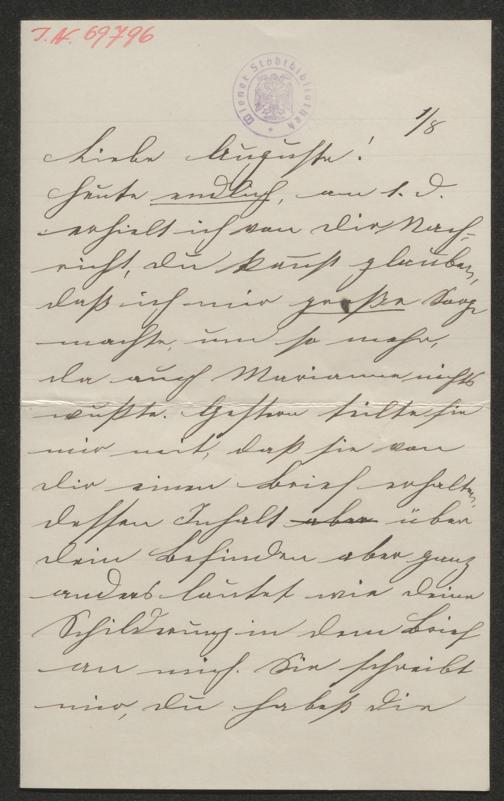 J.N. 69796
Wiener Stadtbibliothek
1/8
Liebe Auguste!
Heute endlich, am 1. d.
erhielt ich von dir Nach-
richt, du kannst glauben,
daß ich mir große Sorge
machte, um so mehr,
da auch Marianne nichts
wußte. Gestern teilte sie
mir mit, daß sie von
dir einen Brief erhalten,
dessen Inhalt aber über
dein Befinden aber ganz
anders lautet wie deine
Schilderung in dem Brief
an mich. Sie schreibt
mir, du habest die